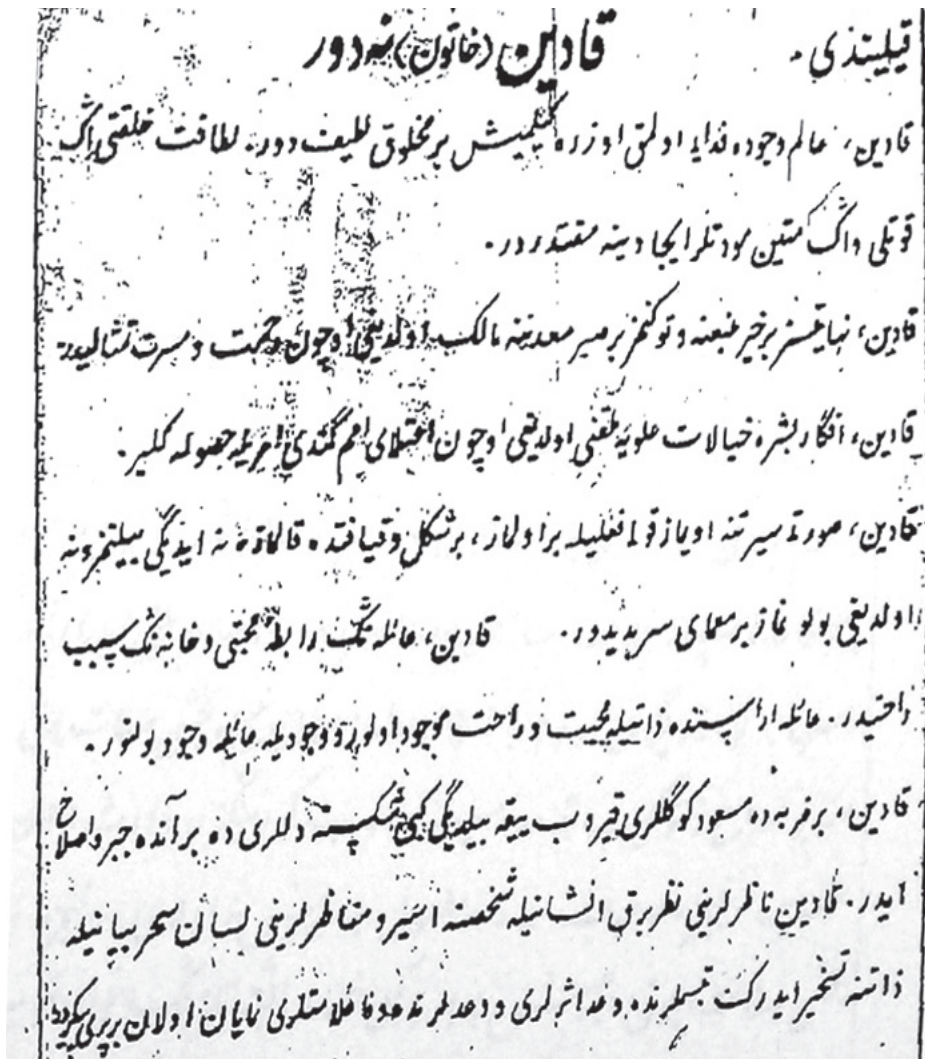 قیلیندی. قادین (خاتون) نه دور
قادین، عالم وجوده فدایا اولمق اوزره گلمیش بر مخلوق لطیف دور. لطافت خلقتی اڭ
قوتلی و اڭ متین مودتلر ایجادینه مقتدر در.
قادین، نهایتسز بر خیر منبعنه و توکنمز بر معدننه مالک اولدیغی اوچون و مسرت تمثالیدر
قادین، افکار بشره خیالات علویه ملقنی اولدیغی اوچون اعتلای حصوله کلیر.
قادین، صورتا سیرتنه اویماز قولا فعلیله بر اولماز، بر شکل و قیافتده قالماز نه ایدیگی بیلینمز و نه
اولدیغی بولونماز بر معمای سربدیدور. قادین، عائله نڭ رابطهٔ محبتی و خانه نڭ سبب
راحتیدر. عائله اراسینده ذاتیله محبت و راحت موجود اولور و وجودیله عائله وجود بولنور.
قادین، بر ضربه ده مسعود کوڭللری قیروب ییقه بیلدیگی کبی شکسته دللری ده بر آنده جبر و اصلاح
ایدر. قادین ناظرلرینی نظر برق افشانیله شخصنه اسیر و مناظرلرینی لسان سحر بیانیله
ذاتنه تسخیر ایدرک تبسملرنده و غدا اثرلری و وعدلرنده وفا علامتلری نمایان اولان بر پری